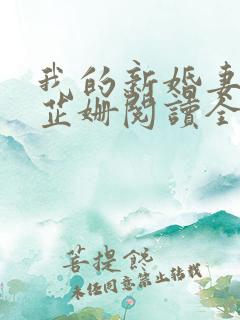 我的新婚妻
芷姗閱讀全
菩提饞
未经同意禁止转载